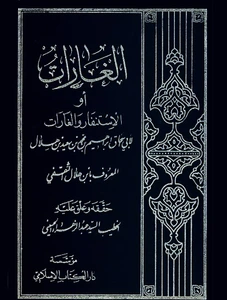 الغارات
أو
الإستنفار والغارات
لأبي إسحاق إبراهيم بن محمد بن سعيد بن هلال
المعروف بابن هلال الثقفي
حققه وعلق عليه
الخطيب السيد عبد الزهراء الحسيني
مؤسسة
دار الكتاب الإسلامي